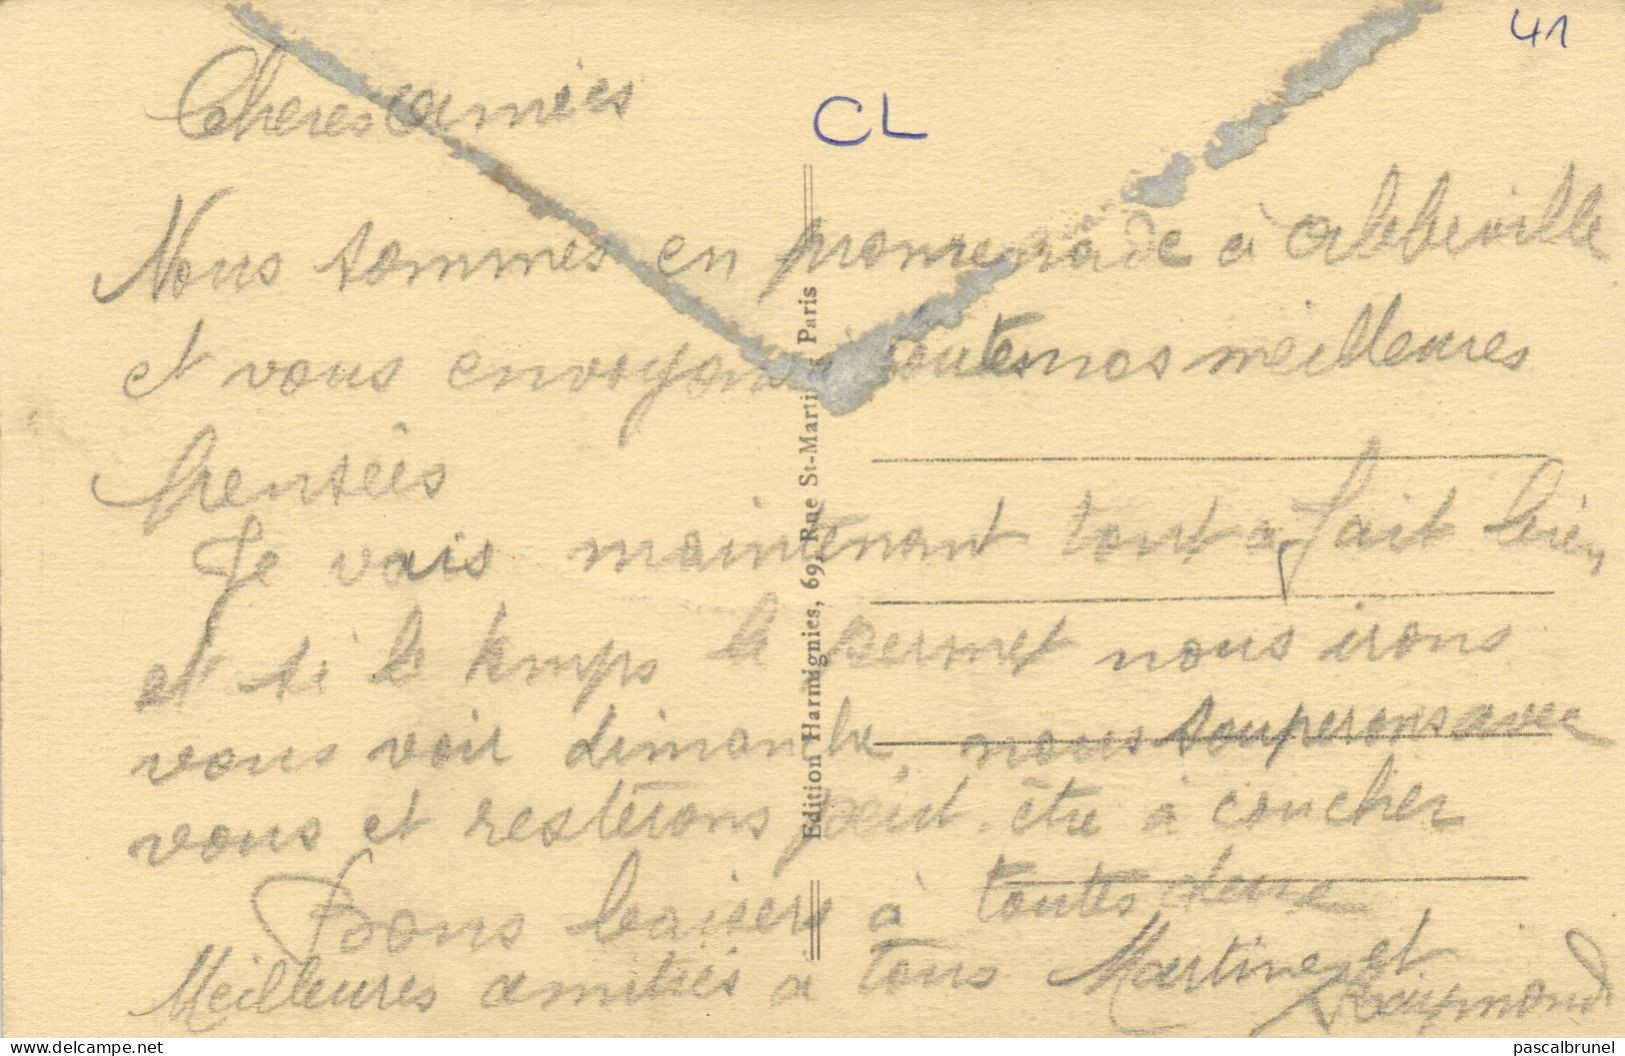 41
CL
Cheres amies
Nous sommes en promenade à Abbeville
et vous envoyons toutes nos meilleures
pensées
Je vais maintenant tout à fait bien,
et si le temps le permet nous irons
vous voir dimanche, nous souperons avec
vous et resterons peut-être à coucher
Bons baisers à toutes deux
Meilleures amitiés à tous Martine et
Raymond
Edition Harmignies, 69, Rue St-Martin Paris
delcampe.net
pascalbrunel